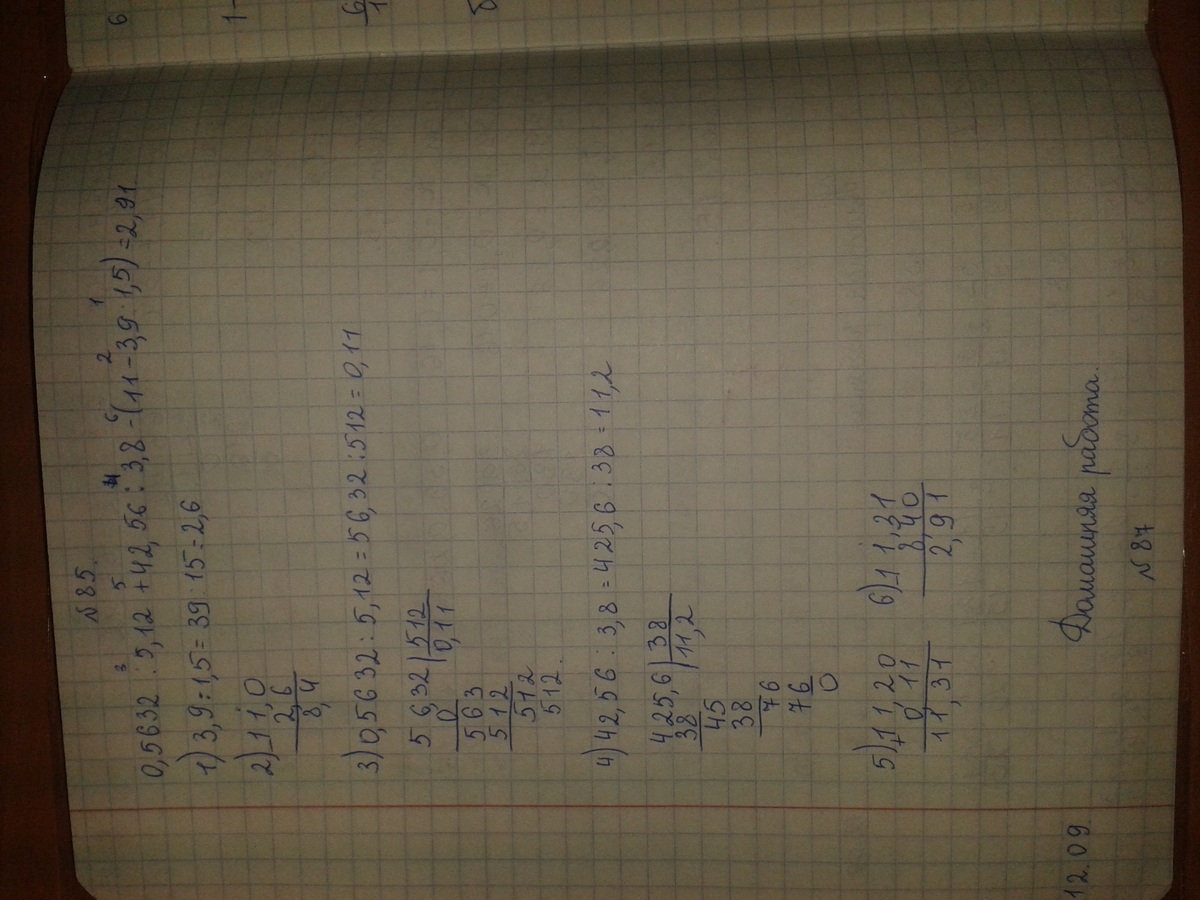 № 85.
3 5 4 6 2 1
0,5632 : 5,12 + 42,56 : 3,8 - (11 - 3,9 : 1,5) = 2,91
1) 3,9 : 1,5 = 39 : 15 = 2,6
2) - 11,0
2,6
8,4
3) 0,5632 : 5,12 = 56,32 : 512 = 0,11
56,32 | 512
0 0,11
563
512
512
512.
4) 42,56 : 3,8 = 425,6 : 38 = 11,2
425,6 | 38
38 11,2
45
38
76
76
0
5) + 11,20 6) - 11,31
0,11 8,40
11,31 2,91
12.09. Домашняя работа.
№ 87